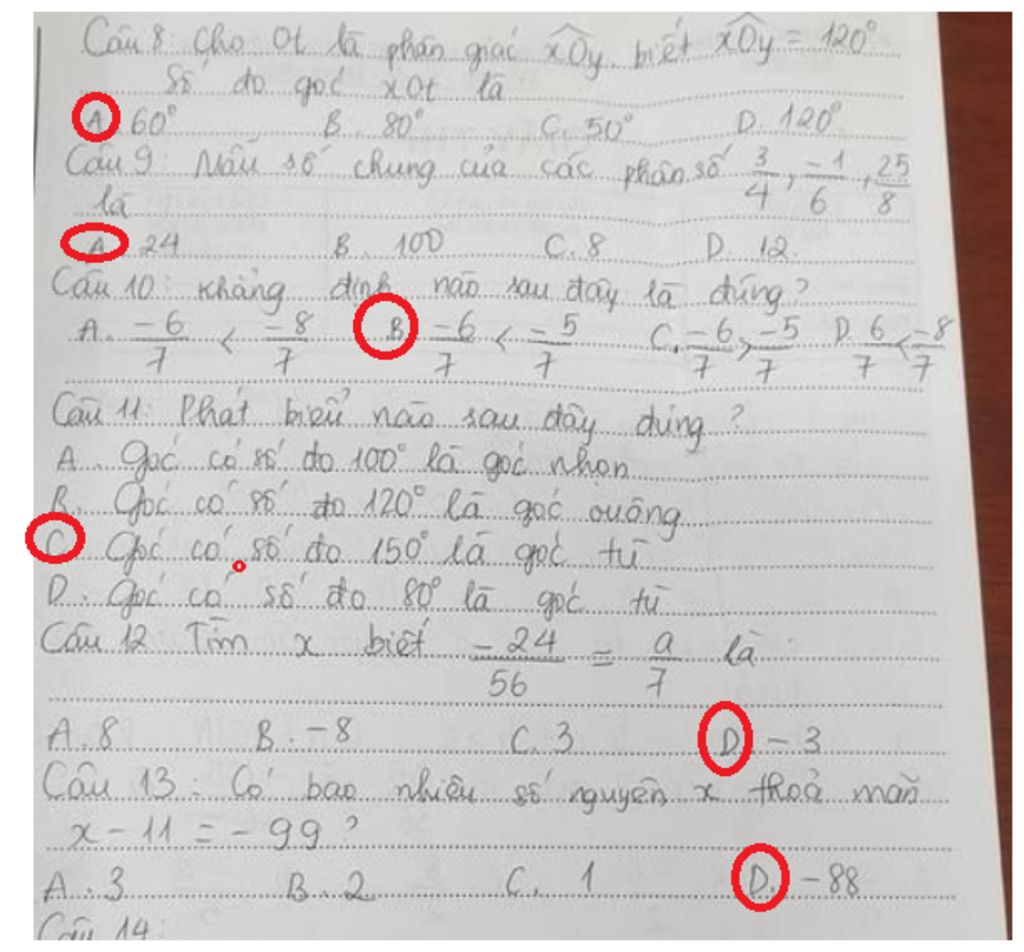 Câu 8: Cho Ot là phân giác xOy, biết xOy = 120°
Số đo góc xOt là
A. 60° B. 80° C. 50° D. 120°
Câu 9: Mẫu số chung của các phân số 3/4, -1/6, 25/8
là
A. 24 B. 100 C. 8 D. 12.
Câu 10: Khẳng định nào sau đây là đúng?
A. -6/7 < -8/7 B. -6/7 < -5/7 C. -6/7 > -5/7 D. 6/7 < -8/7
Câu 11: Phát biểu nào sau đây đúng?
A. Góc có số đo 100° là góc nhọn
B. Góc có số đo 120° là góc vuông
C. Góc có số đo 150° là góc tù
D. Góc có số đo 80° là góc tù
Câu 12 Tìm x biết -24/56 = a/7 là
A. 8 B. -8 C. 3 D. -3
Câu 13: Có bao nhiêu số nguyên x thoả mãn
x - 11 = -99?
A. 3 B. 2 C. 1 D. -88
Câu 14: